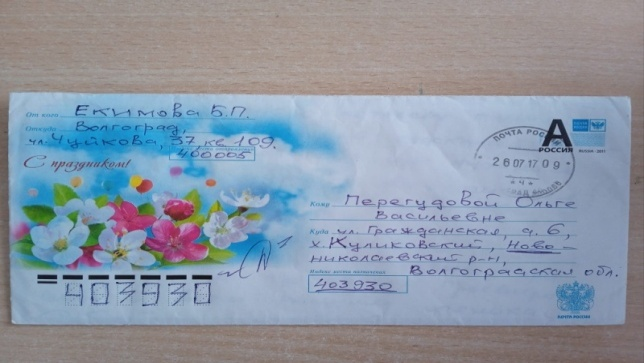 От кого Екимова Б.П.
Откуда Волгоград,
ул. Чуйкова, 37, кв 109.
400005
С праздником!
А
РОССИЯ
ПОЧТА РОС
26 07 17 09
* Ч *
Кому Перегудовой Ольге
Васильевне
Куда ул. Гражданская, д. 6,
х. Куликовский, Ново-
николаевский р-н,
Волгоградская обл.
403930
403930
ПОЧТА РОССИИ